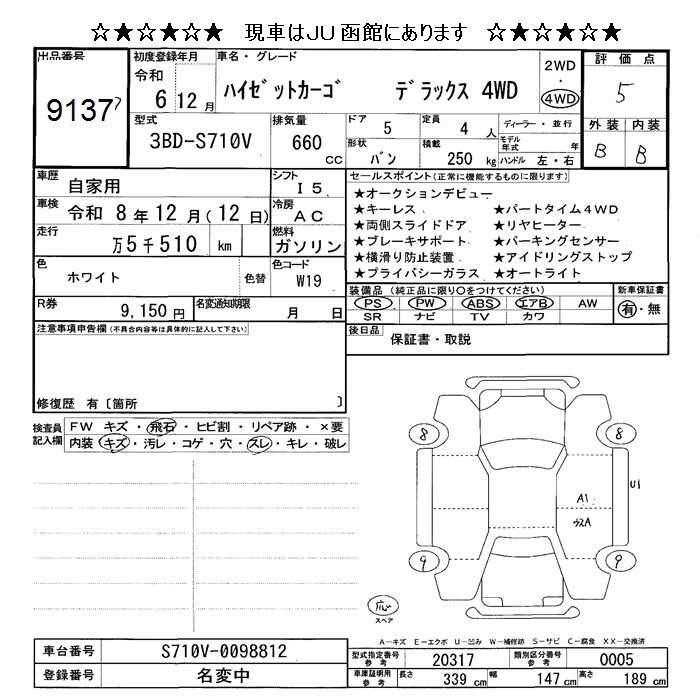 ☆★☆★☆★ 現車はJU函館にあります ☆★☆★☆★
出品番号
9137
初度登録年月
令和 6年 12月
車名・グレード
ハイゼットカーゴ デラックス 4WD
2WD
・
4WD
評価点
5
外装 内装
B B
型式
3BD-S710V
排気量
660 CC
ドア
5
定員
4人
ディーラー・並行
モデル年式 年
形状
バン
積載
250 kg
ハンドル 左・右
車歴
自家用
シフト
I5
車検
令和 8年12月(12日)
冷房
AC
走行
万5千510 km
燃料
ガソリン
色
ホワイト
色替
色コード
W19
R券
9,150円
名変通知期限
月 日
セールスポイント(正常に機能するものに限ります)
★オークションデビュー
★キーレス ★パートタイム4WD
★両側スライドドア ★リヤヒーター
★ブレーキサポート ★パーキングセンサー
★横滑り防止装置 ★アイドリングストップ
★プライバシーガラス ★オートライト
装備品(純正品に限り○をつけてください)
PS PW ABS エアB AW
SR ナビ TV カワ
新車保証書
有・無
後日品
保証書・取説
注意事項申告欄(不具合内容等は具体的に記入して下さい)
修復歴 有〔箇所 〕
検査員記入欄
FW キズ・飛石・ヒビ割・リペア跡・×要
内装 キズ・汚レ・コゲ・穴・スレ・キレ・破レ
8 8
U1
A1
9 9
応
スペア
A-キズ E-エクボ U-凹み W-補修跡 S-サビ C-腐食 XX-交換済
車台番号
S710V-0098812
登録番号
名変中
型式指定番号 参考
20317
類別区分番号 参考
0005
車庫証明用 参考
長さ 339 cm
幅 147 cm
高さ 189 cm